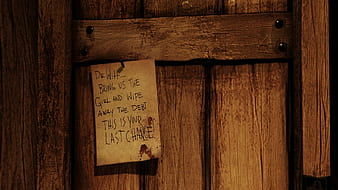 DEWITT
BRING US THE
GIRL AND WIPE
AWAY THE DEBT
THIS IS YOUR
LAST CHANCE